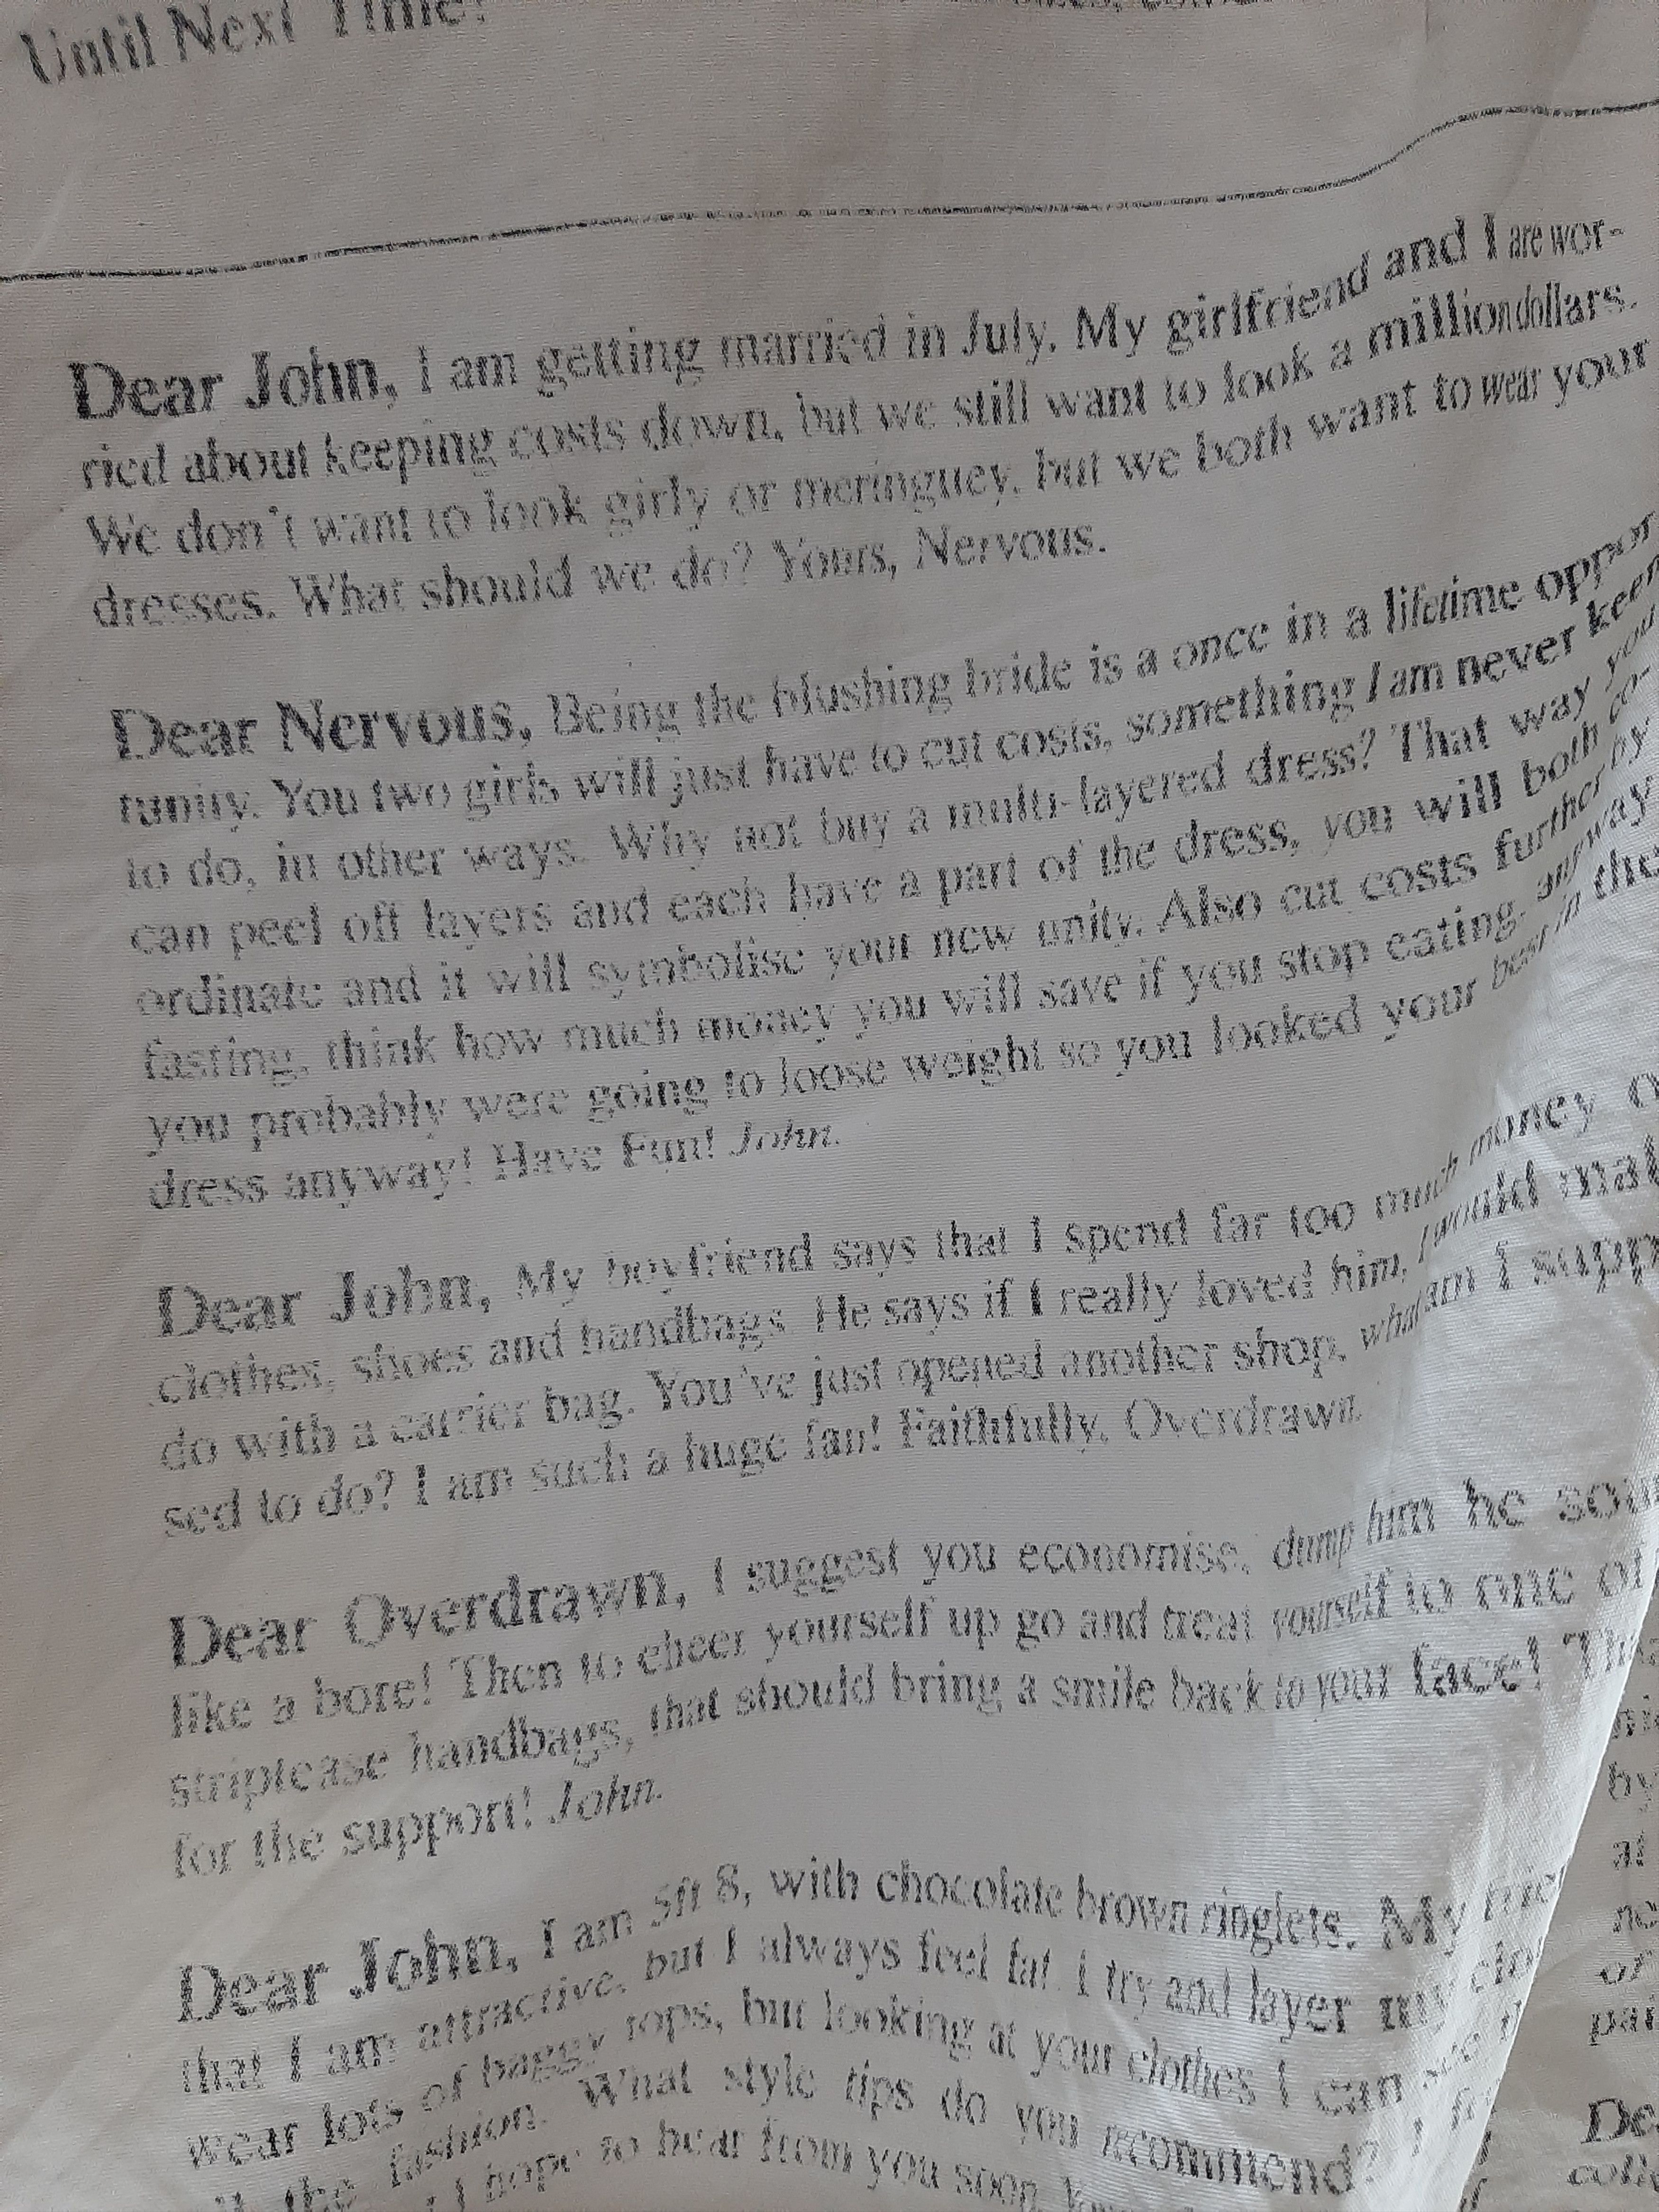 Until Next Time!
Dear John, I am getting married in July. My girlfriend and I are wor-
ried about keeping costs down, but we still want to look a million dollars.
We don't want to look girly or meringuey, but we both want to wear your
dresses. What should we do? Yours, Nervous.
Dear Nervous, Being the blushing bride is a once in a lifetime oppor
tunity. You two girls will just have to cut costs, something I am never keen
to do, in other ways. Why not buy a multi-layered dress? That way you
can peel off layers and each have a part of the dress, you will both co-
ordinate and it will symbolise your new unity. Also cut costs further by
fasting, think how much money you will save if you stop eating, anyway
you probably were going to loose weight so you looked your best in the
dress anyway! Have Fun! John.
Dear John, My boyfriend says that I spend far too much money o
clothes, shoes and handbags. He says if I really loved him, I would mak
do with a carrier bag. You've just opened another shop, what am I supp
sed to do? I am such a huge fan! Faithfully, Overdrawn.
Dear Overdrawn, I suggest you economise, dump him he sou
like a bore! Then to cheer yourself up go and treat yourself to one of
striptease handbags, that should bring a smile back to your face! Th
for the support! John.
Dear John, I am 5ft 8, with chocolate brown ringlets. My frie
that I am attractive, but I always feel fat. I try and layer my clo
wear lots of baggy tops, but looking at your clothes I can see
the fashion. What style tips do you recommend? I
I hope to hear from you soon,
by
at
or
De